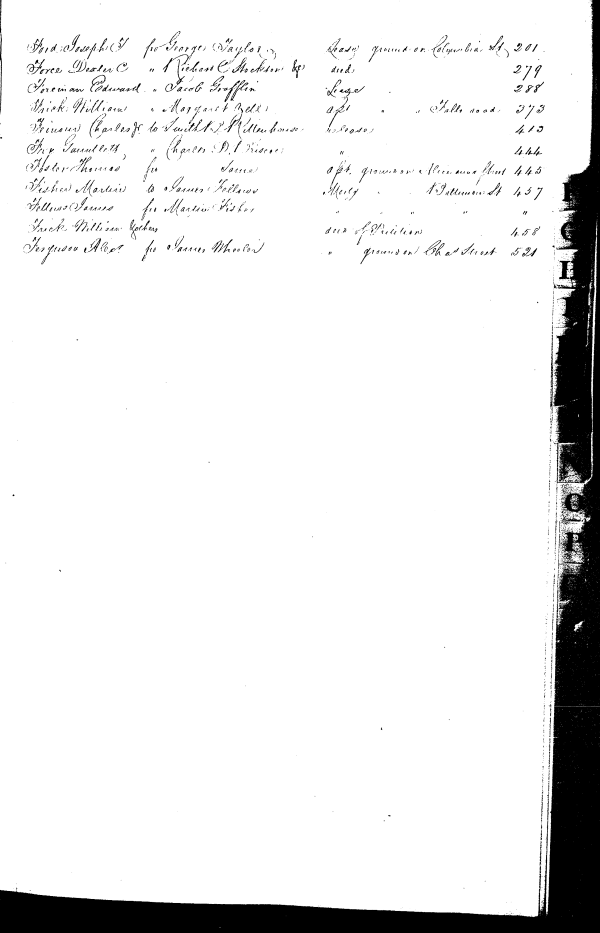 Ford Joseph T fr George Taylor Lease ground on Columbia St 201
Force Dexter C " Richard C Stockton &c deed 279
Foreman Edward " Jacob Grofflin Lease 288
Frick William " Margaret Zell asst " " Falls road 373
Charles Jr to release 413
Fry " Charles D 444
Foster Thomas fr Same asst ground on street 445
Fisher Martin to James Fellows Mortg " Patterson St 457
Fellows James fr Martin Fisher " " " " "
Frick William & others deed of Partition 458
Ferguson Alexr fr James Wheeler " ground on Chas Street 521